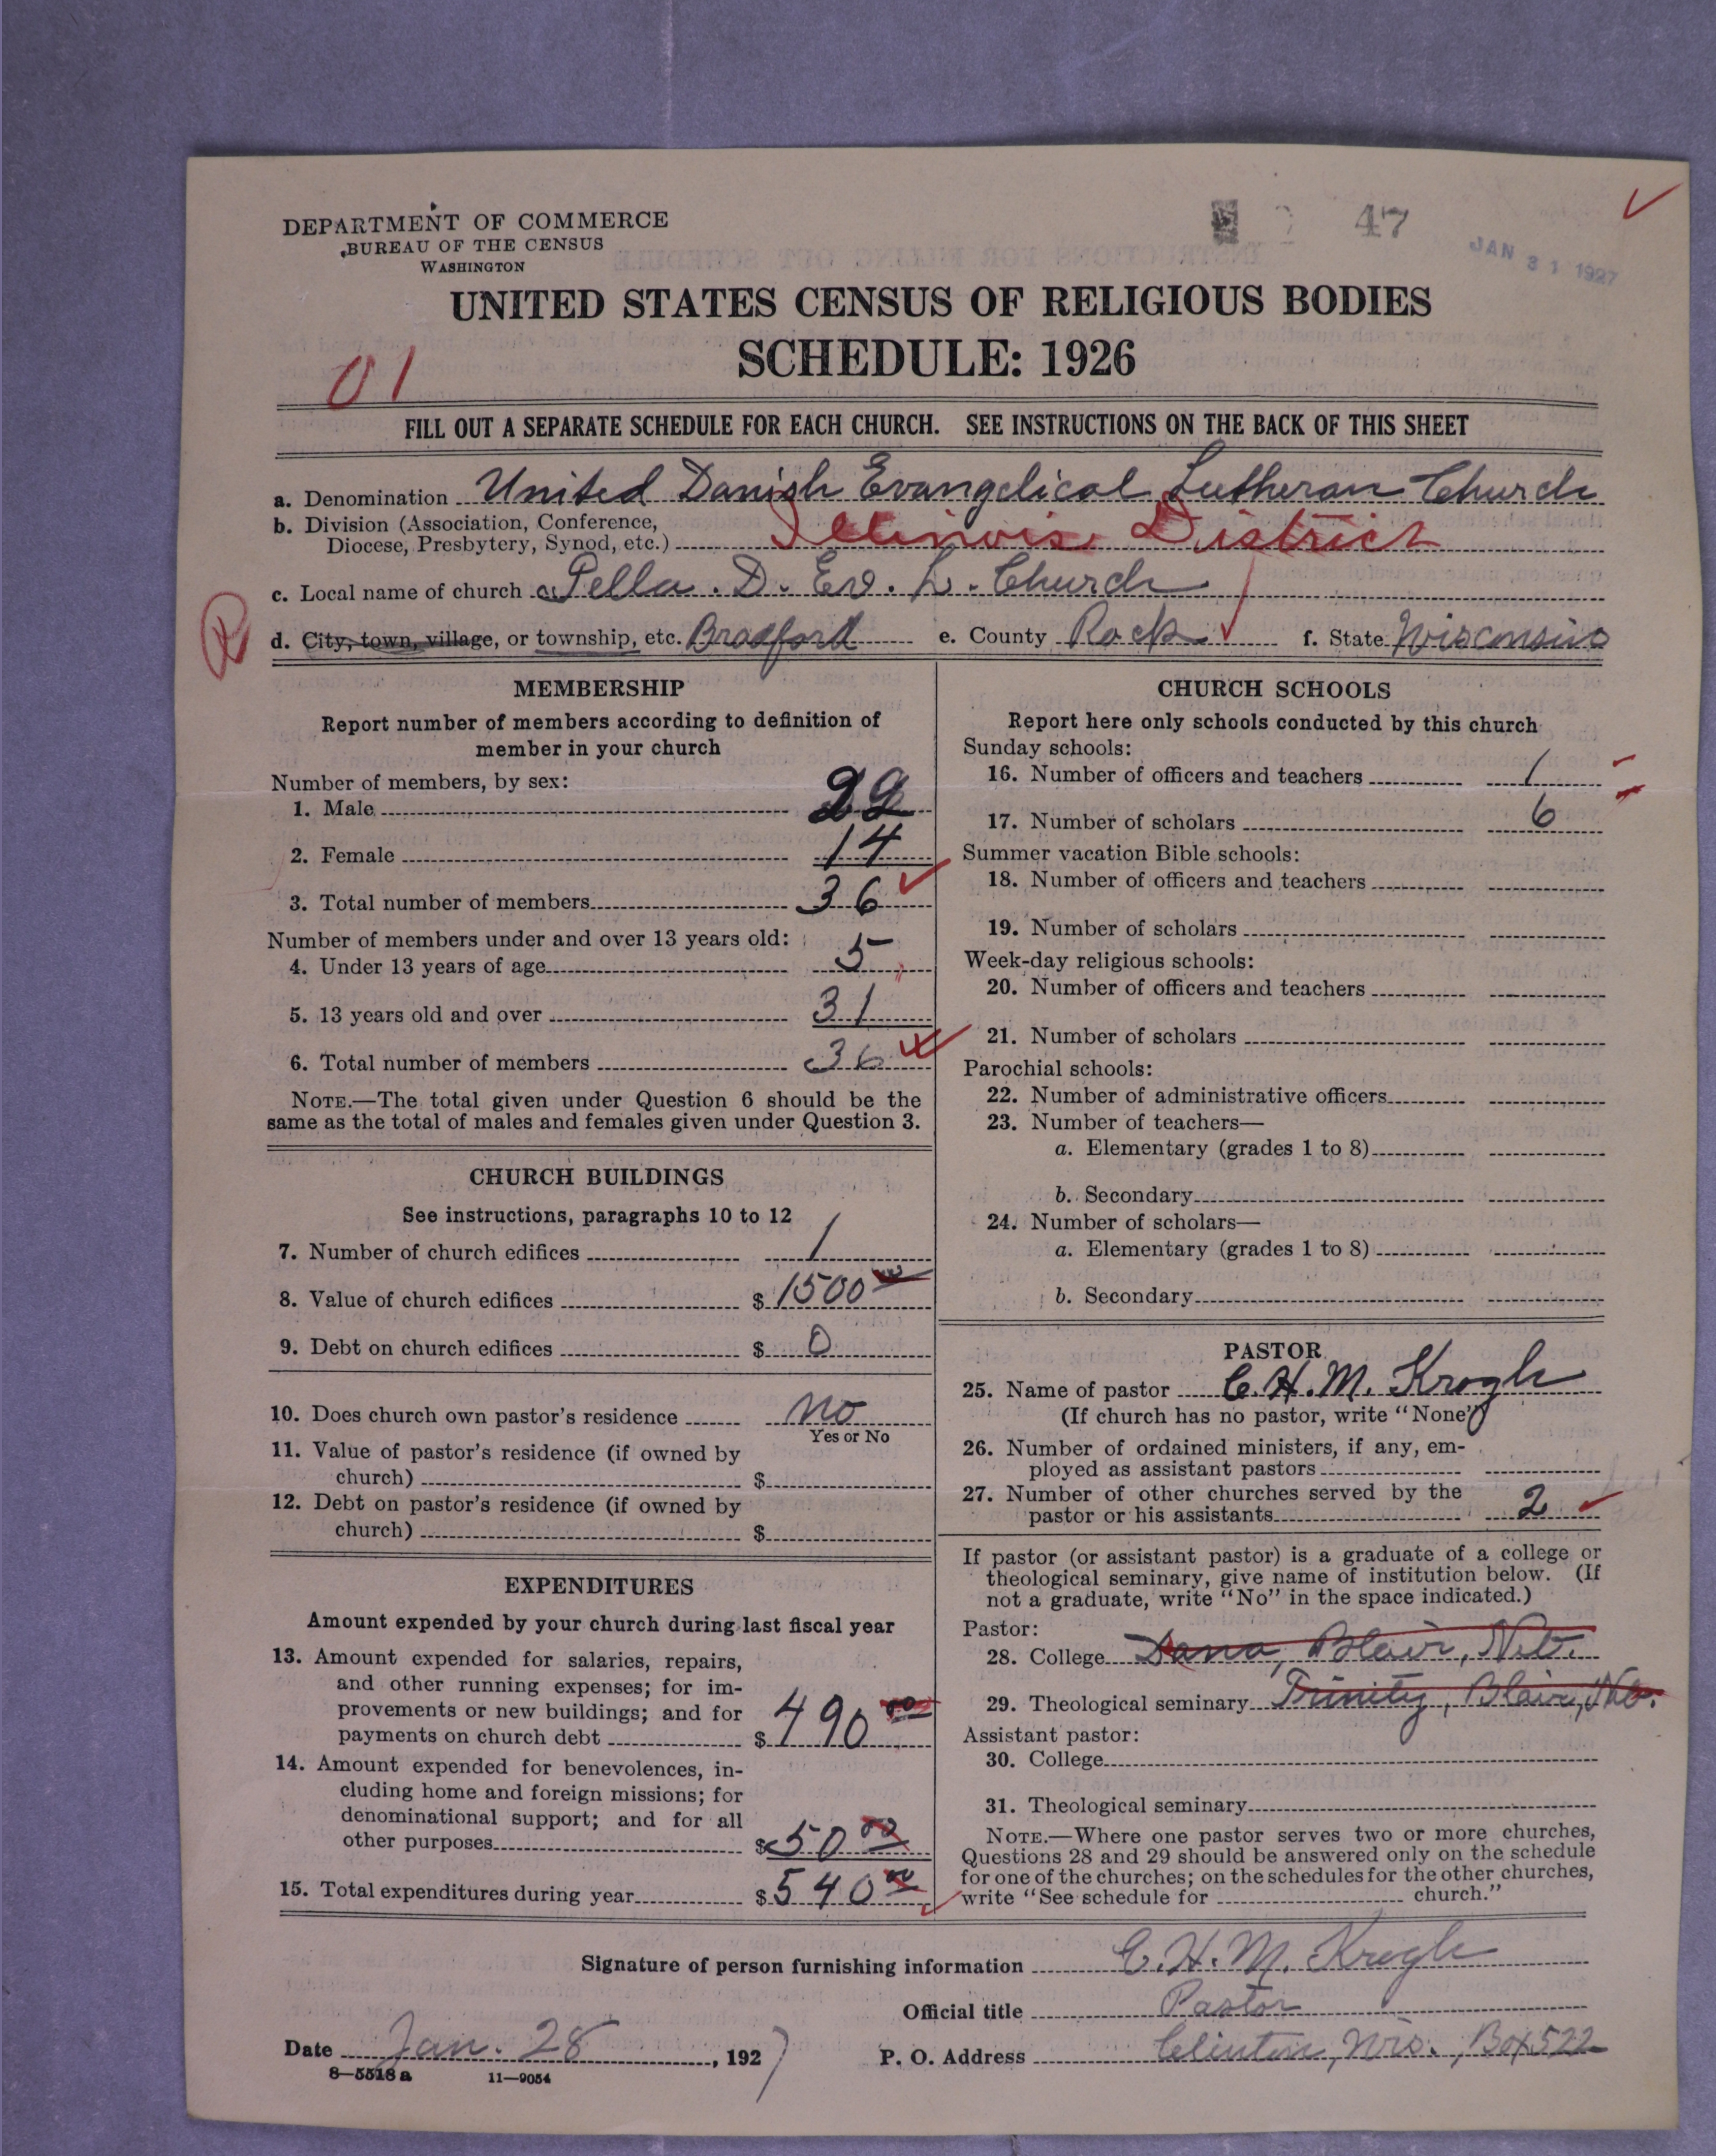 47
JAN 31 1927
DEPARTMENT OF COMMERCE
BUREAU OF THE CENSUS
WASHINGTON
UNITED STATES CENSUS OF RELIGIOUS BODIES
SCHEDULE: 1926
01
FILL OUT A SEPARATE SCHEDULE FOR EACH CHURCH. SEE INSTRUCTIONS ON THE BACK OF THIS SHEET
a. Denomination United Danish Evangelical Lutheran Church
b. Division (Association, Conference,
Diocese, Presbytery, Synod, etc.) Illinois District
c. Local name of church Pella. D. Ev. L. Church
R
d. City, town, village, or township, etc. Bradford e. County Rock f. State Wisconsin
MEMBERSHIP
Report number of members according to definition of
member in your church
Number of members, by sex:
1. Male 22
2. Female 14
3. Total number of members 36
Number of members under and over 13 years old:
4. Under 13 years of age 5
5. 13 years old and over 31
6. Total number of members 36
NOTE.—The total given under Question 6 should be the
same as the total of males and females given under Question 3.
CHURCH BUILDINGS
See instructions, paragraphs 10 to 12
7. Number of church edifices 1
8. Value of church edifices $ 1500 00
9. Debt on church edifices $ 0
10. Does church own pastor's residence no
Yes or No
11. Value of pastor's residence (if owned by
church) $
12. Debt on pastor's residence (if owned by
church) $
EXPENDITURES
Amount expended by your church during last fiscal year
13. Amount expended for salaries, repairs,
and other running expenses; for im-
provements or new buildings; and for
payments on church debt $ 490 00
14. Amount expended for benevolences, in-
cluding home and foreign missions; for
denominational support; and for all
other purposes $ 50 00
15. Total expenditures during year $ 540 00
CHURCH SCHOOLS
Report here only schools conducted by this church
Sunday schools:
16. Number of officers and teachers 1
17. Number of scholars 6
Summer vacation Bible schools:
18. Number of officers and teachers
19. Number of scholars
Week-day religious schools:
20. Number of officers and teachers
21. Number of scholars
Parochial schools:
22. Number of administrative officers
23. Number of teachers—
a. Elementary (grades 1 to 8)
b. Secondary
24. Number of scholars—
a. Elementary (grades 1 to 8)
b. Secondary
PASTOR
25. Name of pastor C. H. M. Krogh
(If church has no pastor, write "None")
26. Number of ordained ministers, if any, em-
ployed as assistant pastors
27. Number of other churches served by the
pastor or his assistants 2
If pastor (or assistant pastor) is a graduate of a college or
theological seminary, give name of institution below. (If
not a graduate, write "No" in the space indicated.)
Pastor:
28. College Dana, Blair, Neb.
29. Theological seminary Trinity, Blair, Neb.
Assistant pastor:
30. College
31. Theological seminary
NOTE.—Where one pastor serves two or more churches,
Questions 28 and 29 should be answered only on the schedule
for one of the churches; on the schedules for the other churches,
write "See schedule for church."
Signature of person furnishing information C. H. M. Krogh
Official title Pastor
Date Jan. 28, 1927
P. O. Address Clinton, Wis., Box 522
8—5518a 11—9054